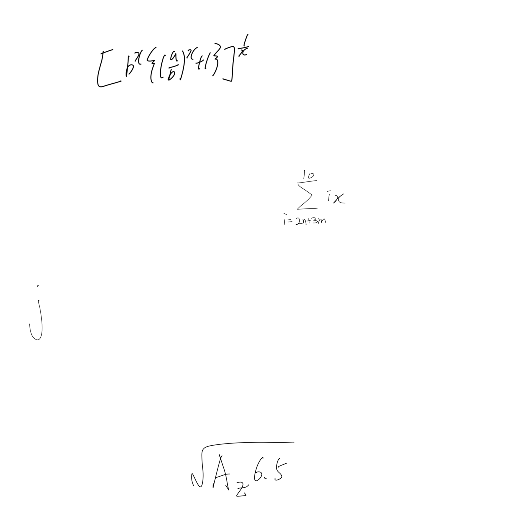 [b^x{(a/b)^x+1}]^{1/x}
\sum_{i=2n+3m}^{10} ix
j
\sqrt{A_z 6.5}